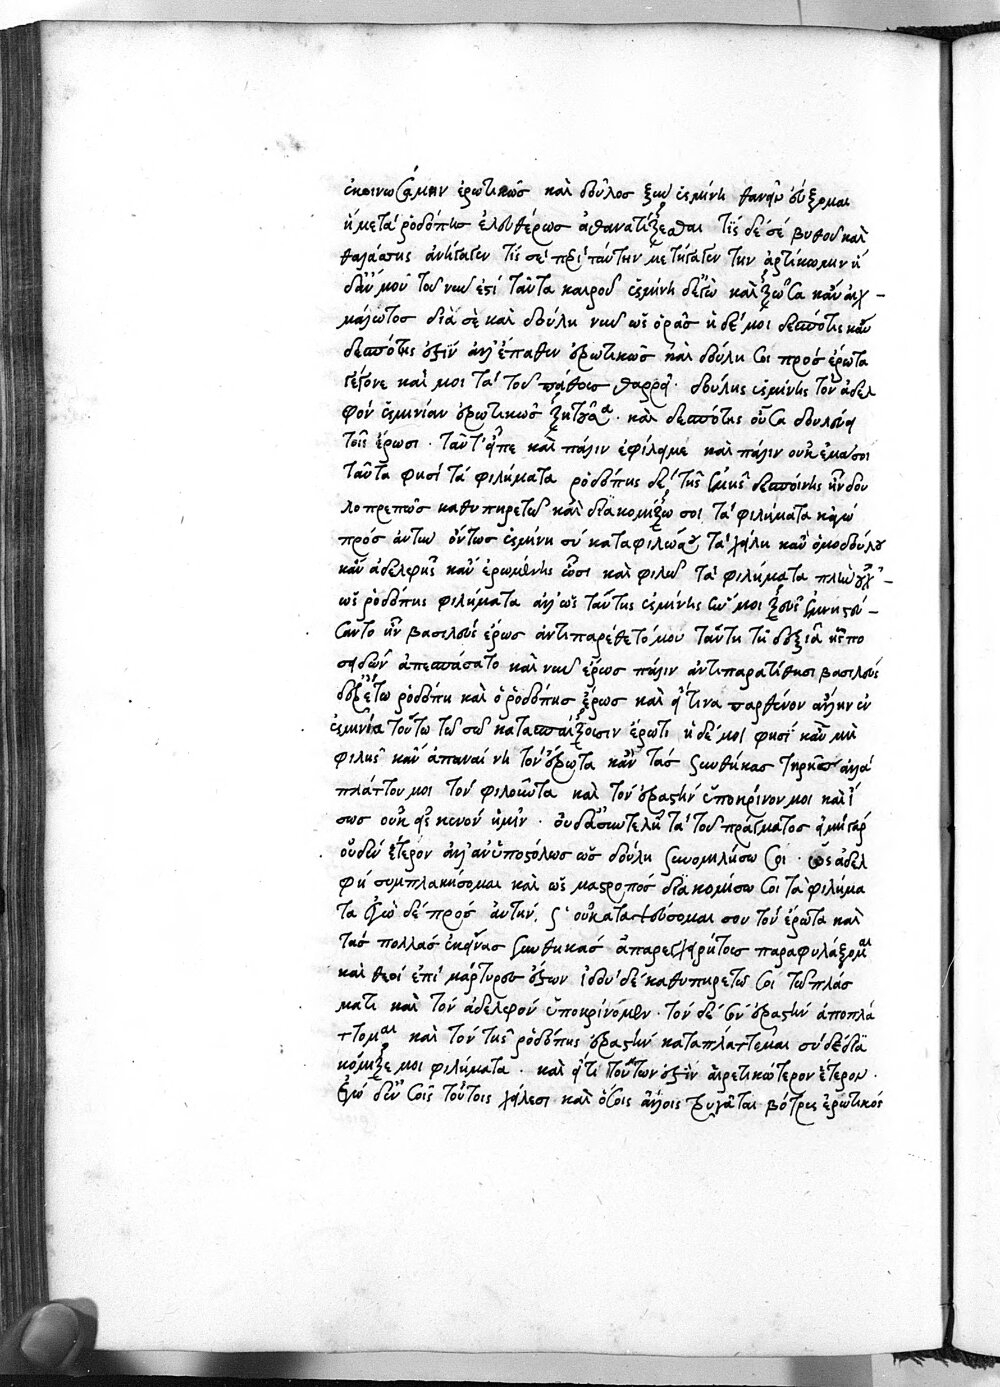 ἐκοινωσάμην ἐρωτικῶς καὶ δοῦλος ξὺν ὑσμίνη θανεῖν εὔξομαι
ἢ μετὰ ῥοδόπης ἐλευθέρως ἀθανατίζεσθαι τίς δέ σε βυθοῦ καὶ
θαλάσσης ἀνήγαγεν τίς σε
δαῖμον τοῦ νῦν ἐπὶ ταῦτα καιροῦ ὑσμίνη δ' ἐγὼ καὶ ζῶσα κἂν αἰχ-
μάλωτος διὰ σὲ καὶ δούλη νῦν ὡς ὁρᾷς ἡ δέ μοι δεσπότις κἂν
δεσπότις ἐστὶν ἀλλ' ἔπαθεν ἐρωτικῶς καὶ δούλη σοι πρὸς ἔρωτα
γέγονε καί μοι τὰ τοῦ πάθους θαρρεῖ· δούλης ὑσμίνης τὸν ἀδελ
φὸν ὑσμινίαν ἐρωτικῶς ζητοῦσα· καὶ δεσπότις οὖσα δουλεύει
τοῖς ἔρωσι· ταῦτ' εἶπε καὶ πάλιν ἐφίλει με καὶ πάλιν οὐκ ἐμά σοι
ταῦτα φησὶ τὰ φιλήματα ῥοδόπης δὲ τῆς ἐμῆς δεσποίνης ἣν δου
λοπρεπῶς καθυπηρετῶ καὶ διακομίζω σοι τὰ φιλήματα κἀγὼ
πρὸς αὐτὴν οὕτως ὑσμίνη σὺ καταφιλῶ σου τὰ χείλη κἂν ὁμοδούλου
κἂν ἀδελφῆς κἂν ἐρωμένης ὦσι καὶ φιλῶ τὰ φιλήματα πλὴν οὐχ -
ὡς ῥοδόπης φιλήματα ἀλλ' ὡς ταύτης ὑσμίνης ἣν μοι ζεὺς ἐμνηστεύ-
σατο ἣν βασιλεὺς ἔρως ἀντιπαρέθετό μου ταύτῃ τῇ δεξιᾷ ἣν πο
σειδῶν ἀπεσπάσατο καὶ νῦν ἔρως πάλιν ἀντιπαρατίθησι βασιλεύς
ἐρρέτω ῥοδόπη καὶ ὁ ῥοδόπης ἔρως καὶ εἴ τινα παρθένον ἄλλην ἐν
ὑσμινίᾳ τούτῳ τῷ σῷ καταπαίζουσιν ἔρωτι ἡ δέ μοι φησὶ κἂν μὴ
φιλῇς κἂν ἀπαναίνῃ τὸν ἔρωτα κἂν τὰς συνθήκας τηρῇς ἀλλὰ
πλάττου μοι τὸν φιλοῦντα καὶ τὸν ἐραστὴν ὑποκρίνου μοι καὶ ἴ
σως οὐκ εἰς κενὸν ἡμῖν· οὐδ' ἀσυντελῆ τὰ τοῦ πράγματος εἰ μή γὰρ
οὐδὲν ἕτερον ἀλλ' ἀνυποστόλως ὡς δούλη συνομιλήσω σοι· ὡς ἀδελ
φὴ συμπλακήσομαι καὶ ὡς μαστροπὸς διακομίσω σοι τὰ φιλήμα
τα ἐγὼ δὲ πρὸς αὐτήν, οὐ καταψεύσομαί σου τὸν ἔρωτα καὶ
τὰς πολλὰς ἐκείνας συνθήκας ἀπαρεγχειρήτους παραφυλάξομαι
καὶ θεοὶ ἐπὶ μάρτυρες ἔστων ἰδοὺ δὲ καθυπηρετῶ σοι τῷ πλάσ
ματι καὶ τὸν ἀδελφὸν ὑποκρίνομαι· τὸν δὲ σὸν ἐραστὴν ἀποπλά
ττομαι καὶ τὸν τῆς ῥοδόπης ἐραστὴν καταπλάττομαι σὺ δὲ δια
κόμιζέ μοι φιλήματα· καὶ εἴ τι τούτων ἐστὶν αἱρετικώτερον ἕτερον·
ἐγὼ δὲ σοῖς τούτοις χείλεσι καὶ ὅσοις ἄλλοις τρυγᾶται βότρυς ἐρωτικὸς